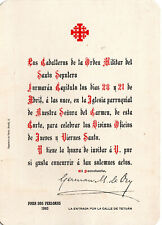 Los Caballeros de la Orden Militar del
Santo Sepulcro
formarán Capítulo los días 20 y 21 de
Abril, á las once, en la Iglesia parroquial
de Nuestra Señora del Carmen, de esta
Corte, para celebrar los Divinos Oficios
de Jueves y Viernes Santo.
Y tiene la honra de invitar á V. por
si gusta concurrir á tan solemnes actos.
PARA DOS PERSONAS
LA ENTRADA POR LA CALLE DE TETUÁN